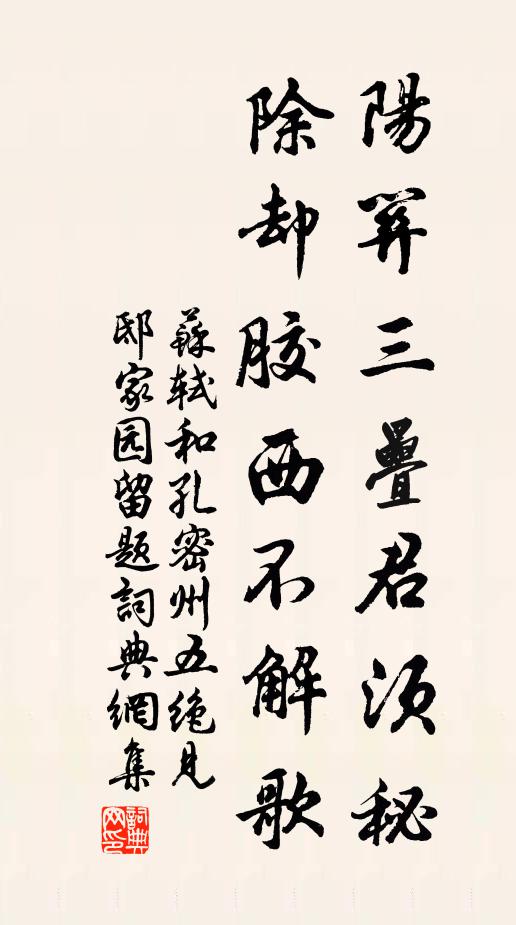 陽關三疊君須秘
除却膠西不解歌
蘇軾和孔密州五絕見
邸家园留题詞典網集
詞典網印